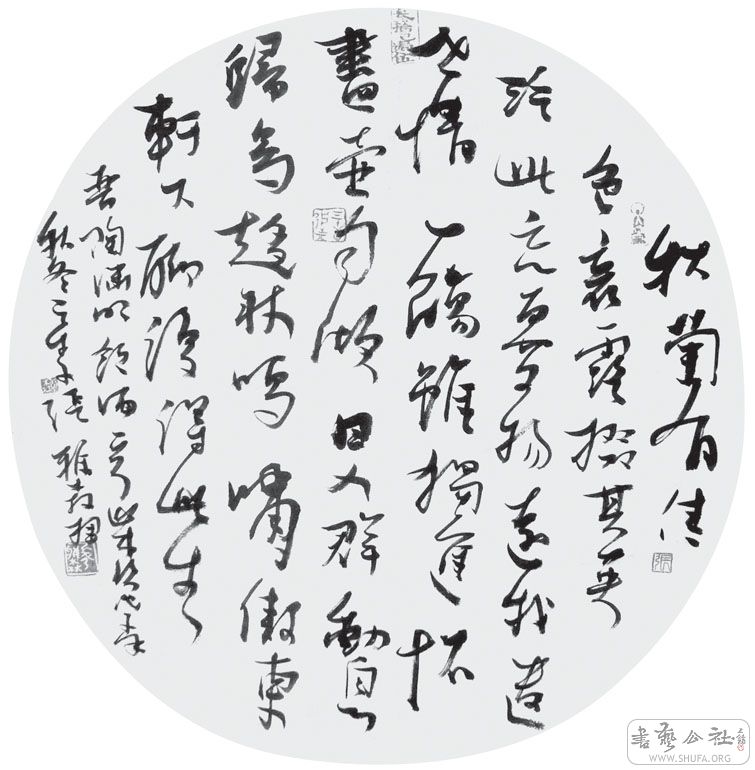 秋菊有佳
色裛露掇其英
泛此忘憂物遠我遺
世情一觴雖獨進杯
盡壺自傾日入群動息
歸鳥趨林鳴嘯傲東
軒下聊復得此生
書陶淵明飲酒
張雅
書藝公社
WWW.SHUFA.ORG